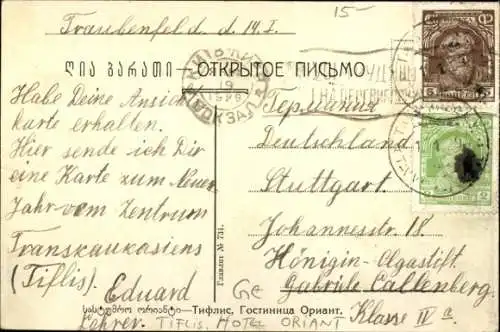 15-
Traubenfeld d. 14. I.
ღია ბარათი — ОТКРЫТОЕ ПИСЬМО
Habe Deine Ansich
karte erhalten.
Hier sende ich Dir
eine Karte zum Neuen
Jahr vom Zentrum
Transkaukasiens
(Tiflis) Eduard
Lehrer.
Германия
Deutschland
Stuttgart
Johannesstr. 18
Königin-Olgastift
Gabriele Callenberg
Klasse IV a
Главлит № 731.
სასტუმრო ორიანტი—Тифлис, Гостинница Ориант.
TIFLIS. HOTEL ORIANT